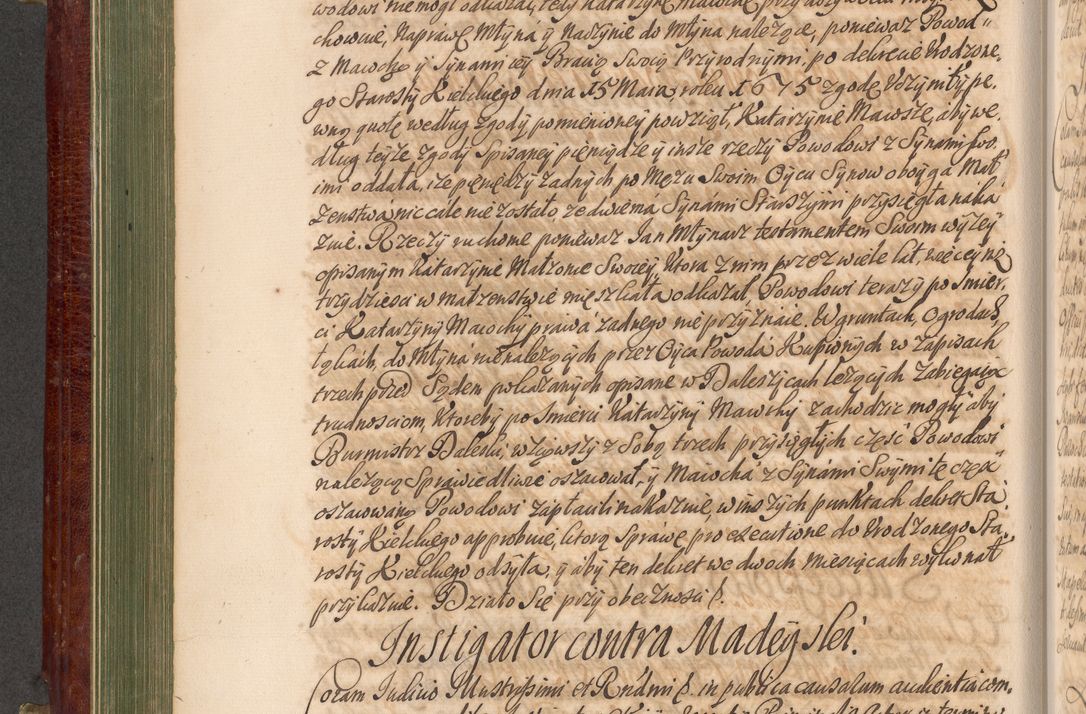 wodowi nie mogł odkazać, tedy Katarzynę Maiochę przy
chowuie, Naprawę Młyná y Naczynie do Młyna należące, ponieważ Powod
z Maiochą y Synami iey Bracią Swoią Przyrodnymi, po dekrecie Urodzone,
go Starosty Kielckiego dnia 15 Maia, roku 1675 zgodę uczymiły pe,
wną quotę według zgody pomienioney powziął, Katarzynie Maiosze, aby we,
dług teyże zgody Spisaney pieniądze y insze rzeczy Powodowi z Synami swo,
imi oddała, iże pieniędzy żadnych po Mężu Swoim Oycu Synow oboyga Mał,
żenstwa nic cale nie zostało, ze dwiema Synami Starszymi przysięgła naka
zuie. Rzeczy ruchome ponieważ Jan Młynarz testamentem Swoim wyżey
opisanym Katarzynie Małżonie Swoiey, ktora z nim przez wiele lat, więcey niż
trzydziesci w małżenstwie mieszkała odkazał, Powodowi terazy po Smier,
ci Katarzyny Maiochy prawá żadnego nie przyznaie. W gruntach, Ogrodach,
łąkach, do Młyná nie należących przez Oyca Powodá Kupionych w zapisach
trzech przed Sądem pokazanych opisane w Daleszycach leżących zabiegaiąc
trudnosciom, ktoreby po Smierci Katarzyny Maiochy zachodzic mogły aby
Burmistrz Daleski, wziąwszy z Sobą trzech przysięgłych część Powodowi
należącą Sprawiedliwie oszacował, y Maiocha z Synámi Swymi tę część
oszacowaną Powodowi zapłacili nakazuie, w inszych punktach dekret Sta,
rosty Kielckiego approbuie, ktorą Sprawę pro executione do Urodzonego Sta,
rosty Kielckiego odsyła, y aby ten dekret we dwoch miesiącach wykonał
przykazuie. Działo Się przy obecznosci &.
Instigator contra Madeyski.
Coram Iudicio Illustrissimi et Rndmi &. in publica causarum audientia com,